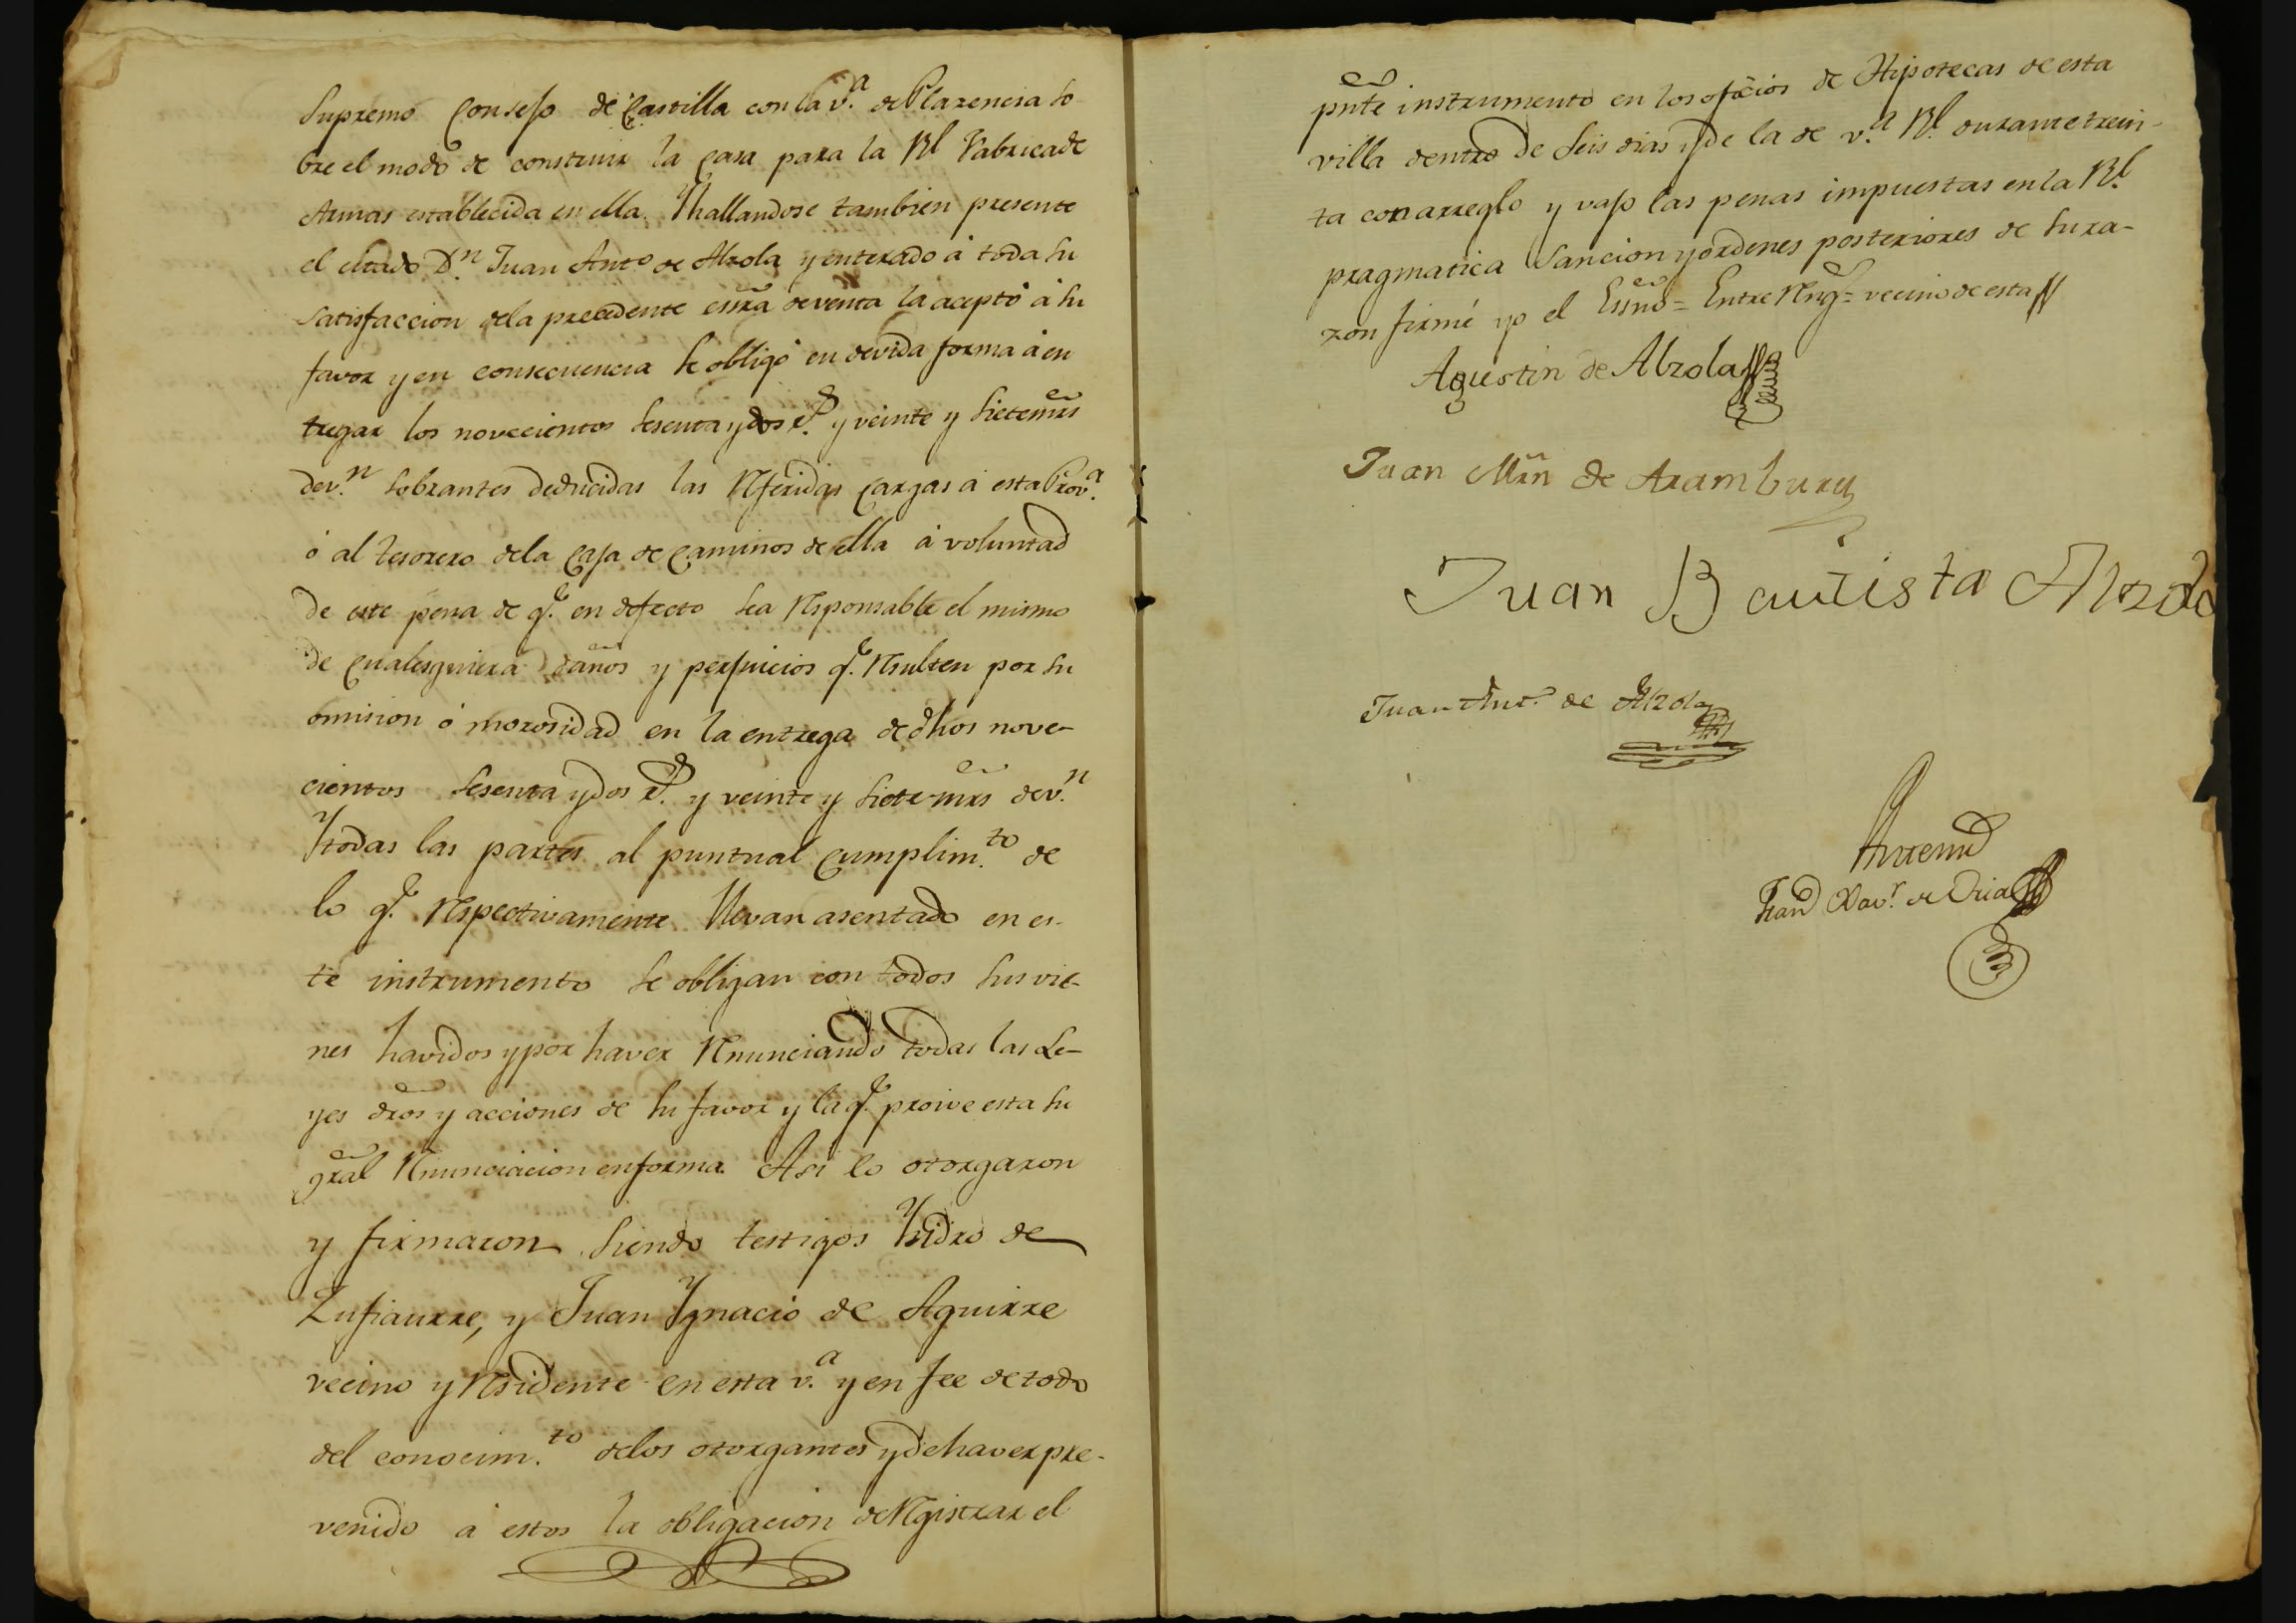 Supremo Consejo de Castilla con la v.ª de Plazencia so
bre el modo de construir la Casa para la Rl Fabrica de
Armas establecida en ella. Yhallandose tambien presente
el citado Dn. Juan Anto de Alzola y enterado á toda su
satisfaccion dela precedente essra deventa la aceptó á su
favor y en consecuencia se obligó en devida forma á en
tregar los novecientos sesenta y dos y veinte y siete mrs
dev.n sobrantes deducidas las Referidas Cargas á esta Prov.a
ó al tesorero dela Caja de Caminos de ella á voluntad
de este pena de q.e en defecto sea Responsable el mismo
de qualesquiera daños y perjuicios q.e Resulten por su
omision ó morosidad en la entrega de dhos nove-
cientos sesenta y dos y veinte y siete mrs dev.n
Ytodas las partes al puntual Cumplim.to de
lo q.e Respectivamente llevan asentado en es-
te instrumento se obligan con todos sus vie-
nes havidos y por haver Renunciando todas las Le-
yes dros y acciones de su favor y la q.e proive esta su
gral Renunciacion en forma. Asi lo otorgaron
y firmaron siendo testigos Ysidro de
Zufiaurre, y Juan Ygnacio de Aguirre
vecino y Residente en esta v.a y en fee de todo
del conocim.to delos otorgantes y de haver pre-
venido á estos la obligacion de Registrar el
pnte instrumento en los oficios de Hipotecas de esta
villa dentro de seis dias y de la de v.a Rl. durante trein-
ta con arreglo y vajo las penas impuestas en la Rl.
pragmatica sancion y ordenes posteriores de su ra-
zon firmé yo el Essno = Entre Rengs = vecino de esta
Agustin de Alzola
Juan Mrn de Aramburu
Juan Bautista Alzola
Juan Ant.o de Alzola
Antemi
Fran Xav.r de